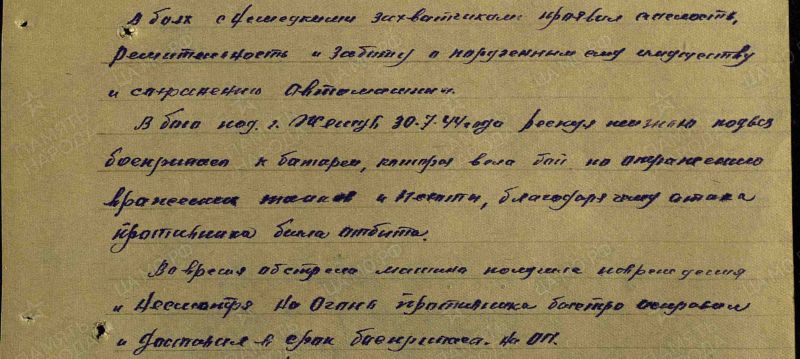 В боях с немецкими захватчиками проявил смелость,
решительность и заботу о порученным ему имуществу
и сохранению автомашин.
В бою под г. 30.7.44 года рискуя жизнью подвез
боеприпасы к батареи, которая вела бой по отражению
вражеских танков и пехоты, благодаря чему атака
противника была отбита.
Во время обстрела машина получила повреждения
и несмотря на огонь противника быстро исправил
и доставил в срок боеприпасы на ОП.